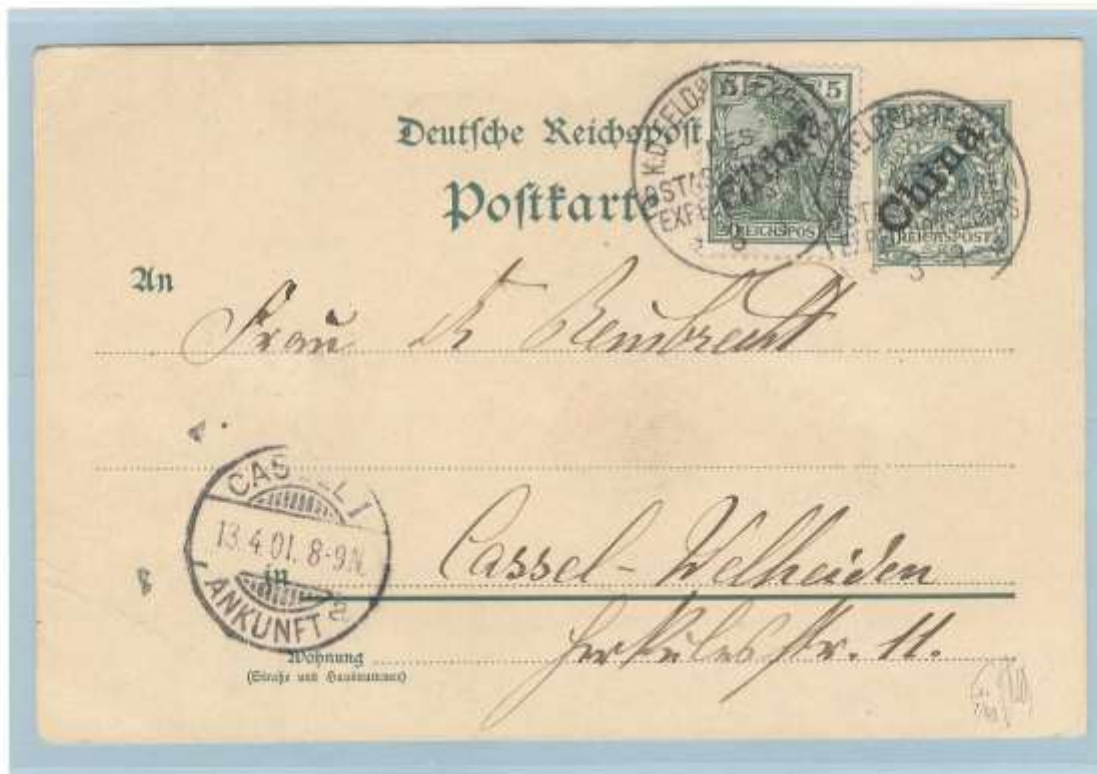 Deutsche Reichspost
Postkarte
5 5
China
REICHSPOST
China
REICHSPOST
K.D. FELDPOSTEXPED
DES
OSTASIAT
EXPED
An
Frau Dr Rembrecht
CASSEL 1
13.4.01. 8-9N.
ANKUNFT
in
Cassel-Welheiden
Wohnung
(Straße und Hausnummer)
Herkulesstr. 11.